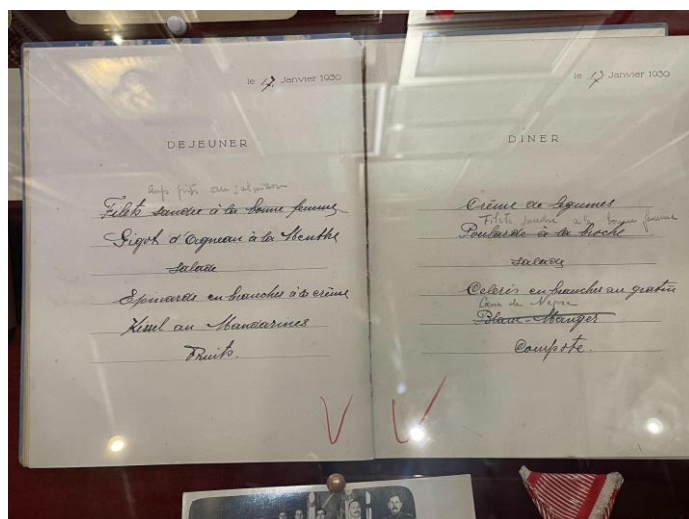 le 17 Janvier 1930
DEJEUNER
Filets sandre à la bonne femme
Gigot d'Agneau à la Menthe
Salade
Epinards en branches à la crème
Kissel au Mandarines
Fruits.
le 17 Janvier 1930
DINER
Crème de légumes
Filets sandre a la bonne femme
Poularde à la broche
Salade
Celeris en branches au gratin
Blanc-Manger
Compote.